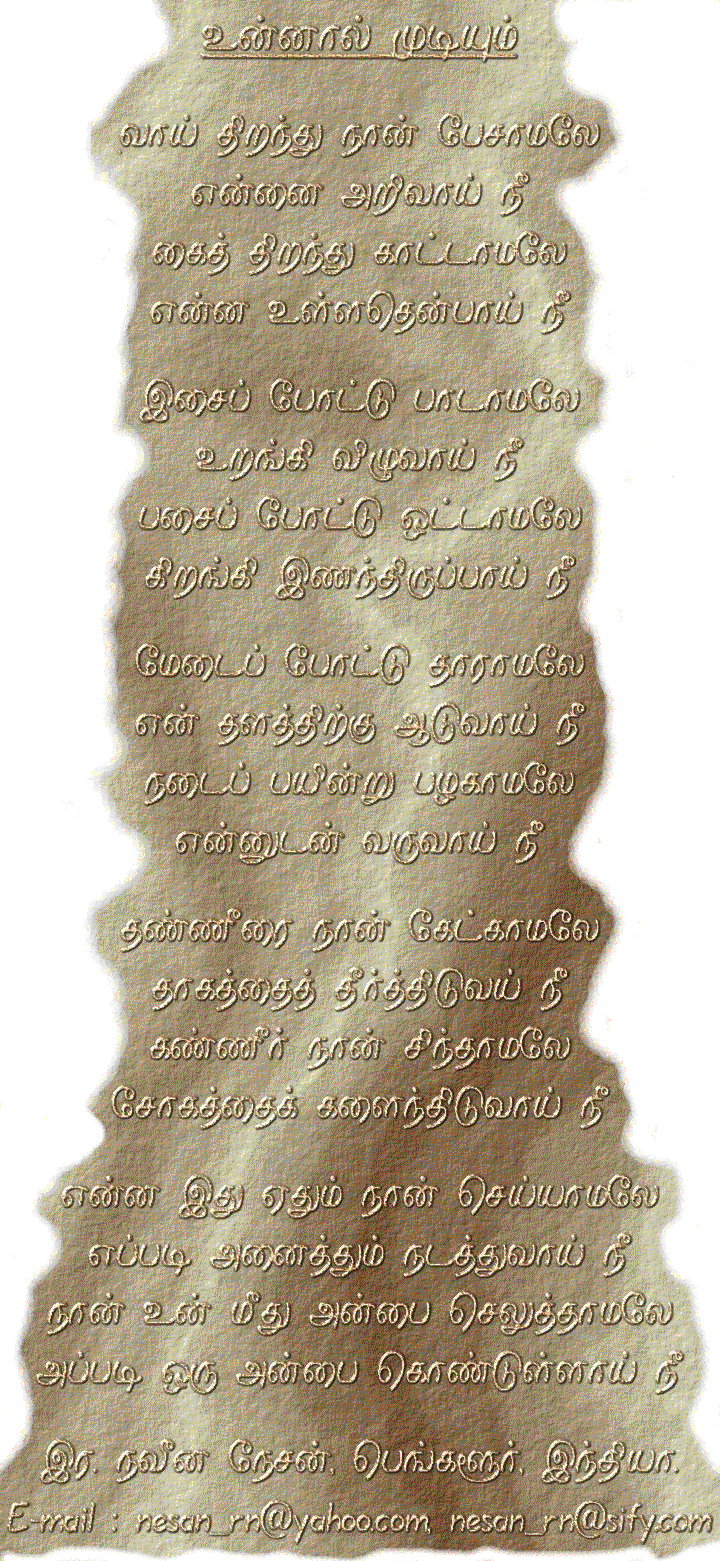 உன்னால் முடியும்
வாய் திறந்து நான் பேசாமலே
என்னை அறிவாய் நீ
கைத் திறந்து காட்டாமலே
என்ன உள்ளதென்பாய் நீ
இசைப் போட்டு பாடாமலே
உறங்கி விழுவாய் நீ
பசைப் போட்டு ஒட்டாமலே
கிறங்கி இணந்திருப்பாய் நீ
மேடைப் போட்டு தாராமலே
என் தளத்திற்கு ஆடுவாய் நீ
நடைப் பயின்று பழகாமலே
என்னுடன் வருவாய் நீ
தண்ணீரை நான் கேட்காமலே
தாகத்தைத் தீர்த்திடுவய் நீ
கண்ணீர் நான் சிந்தாமலே
சோகத்தைக் களைந்திடுவாய் நீ
என்ன இது ஏதும் நான் செய்யாமலே
எப்படி அனைத்தும் நடத்துவாய் நீ
நான் உன் மீது அன்பை செலுத்தாமலே
அப்படி ஒரு அன்பை கொண்டுள்ளாய் நீ
இர. நவீன நேசன், பெங்களூர், இந்தியா.
E-mail : nesan_rn@yahoo.com, nesan_rn@sify.com